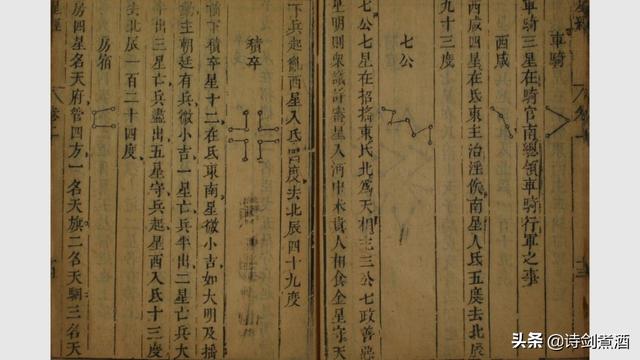 車騎
車騎三星在騎官南總領車騎行軍之事
西咸
西咸四星在氐東主治淫佚南星入氐五度去北辰
九十三度
七公
七公七星在招摇東氐北為天相主三公七政善惡
星明則衆議詳審星入河中米貴人相食金星守天
下兵起亂西星入氐四度去北辰四十九度
積卒
積卒星十二在氐東南星微小吉如大明及搖
動主朝廷有兵微小吉一星亡兵半出二星亡兵大
半出三星亡兵盡出五星守兵起星西入氐十三度
去北辰一百二十四度
房宿
房四星名天府管四方一名天旗二名天駟三名天
头条 @诗剑煮酒